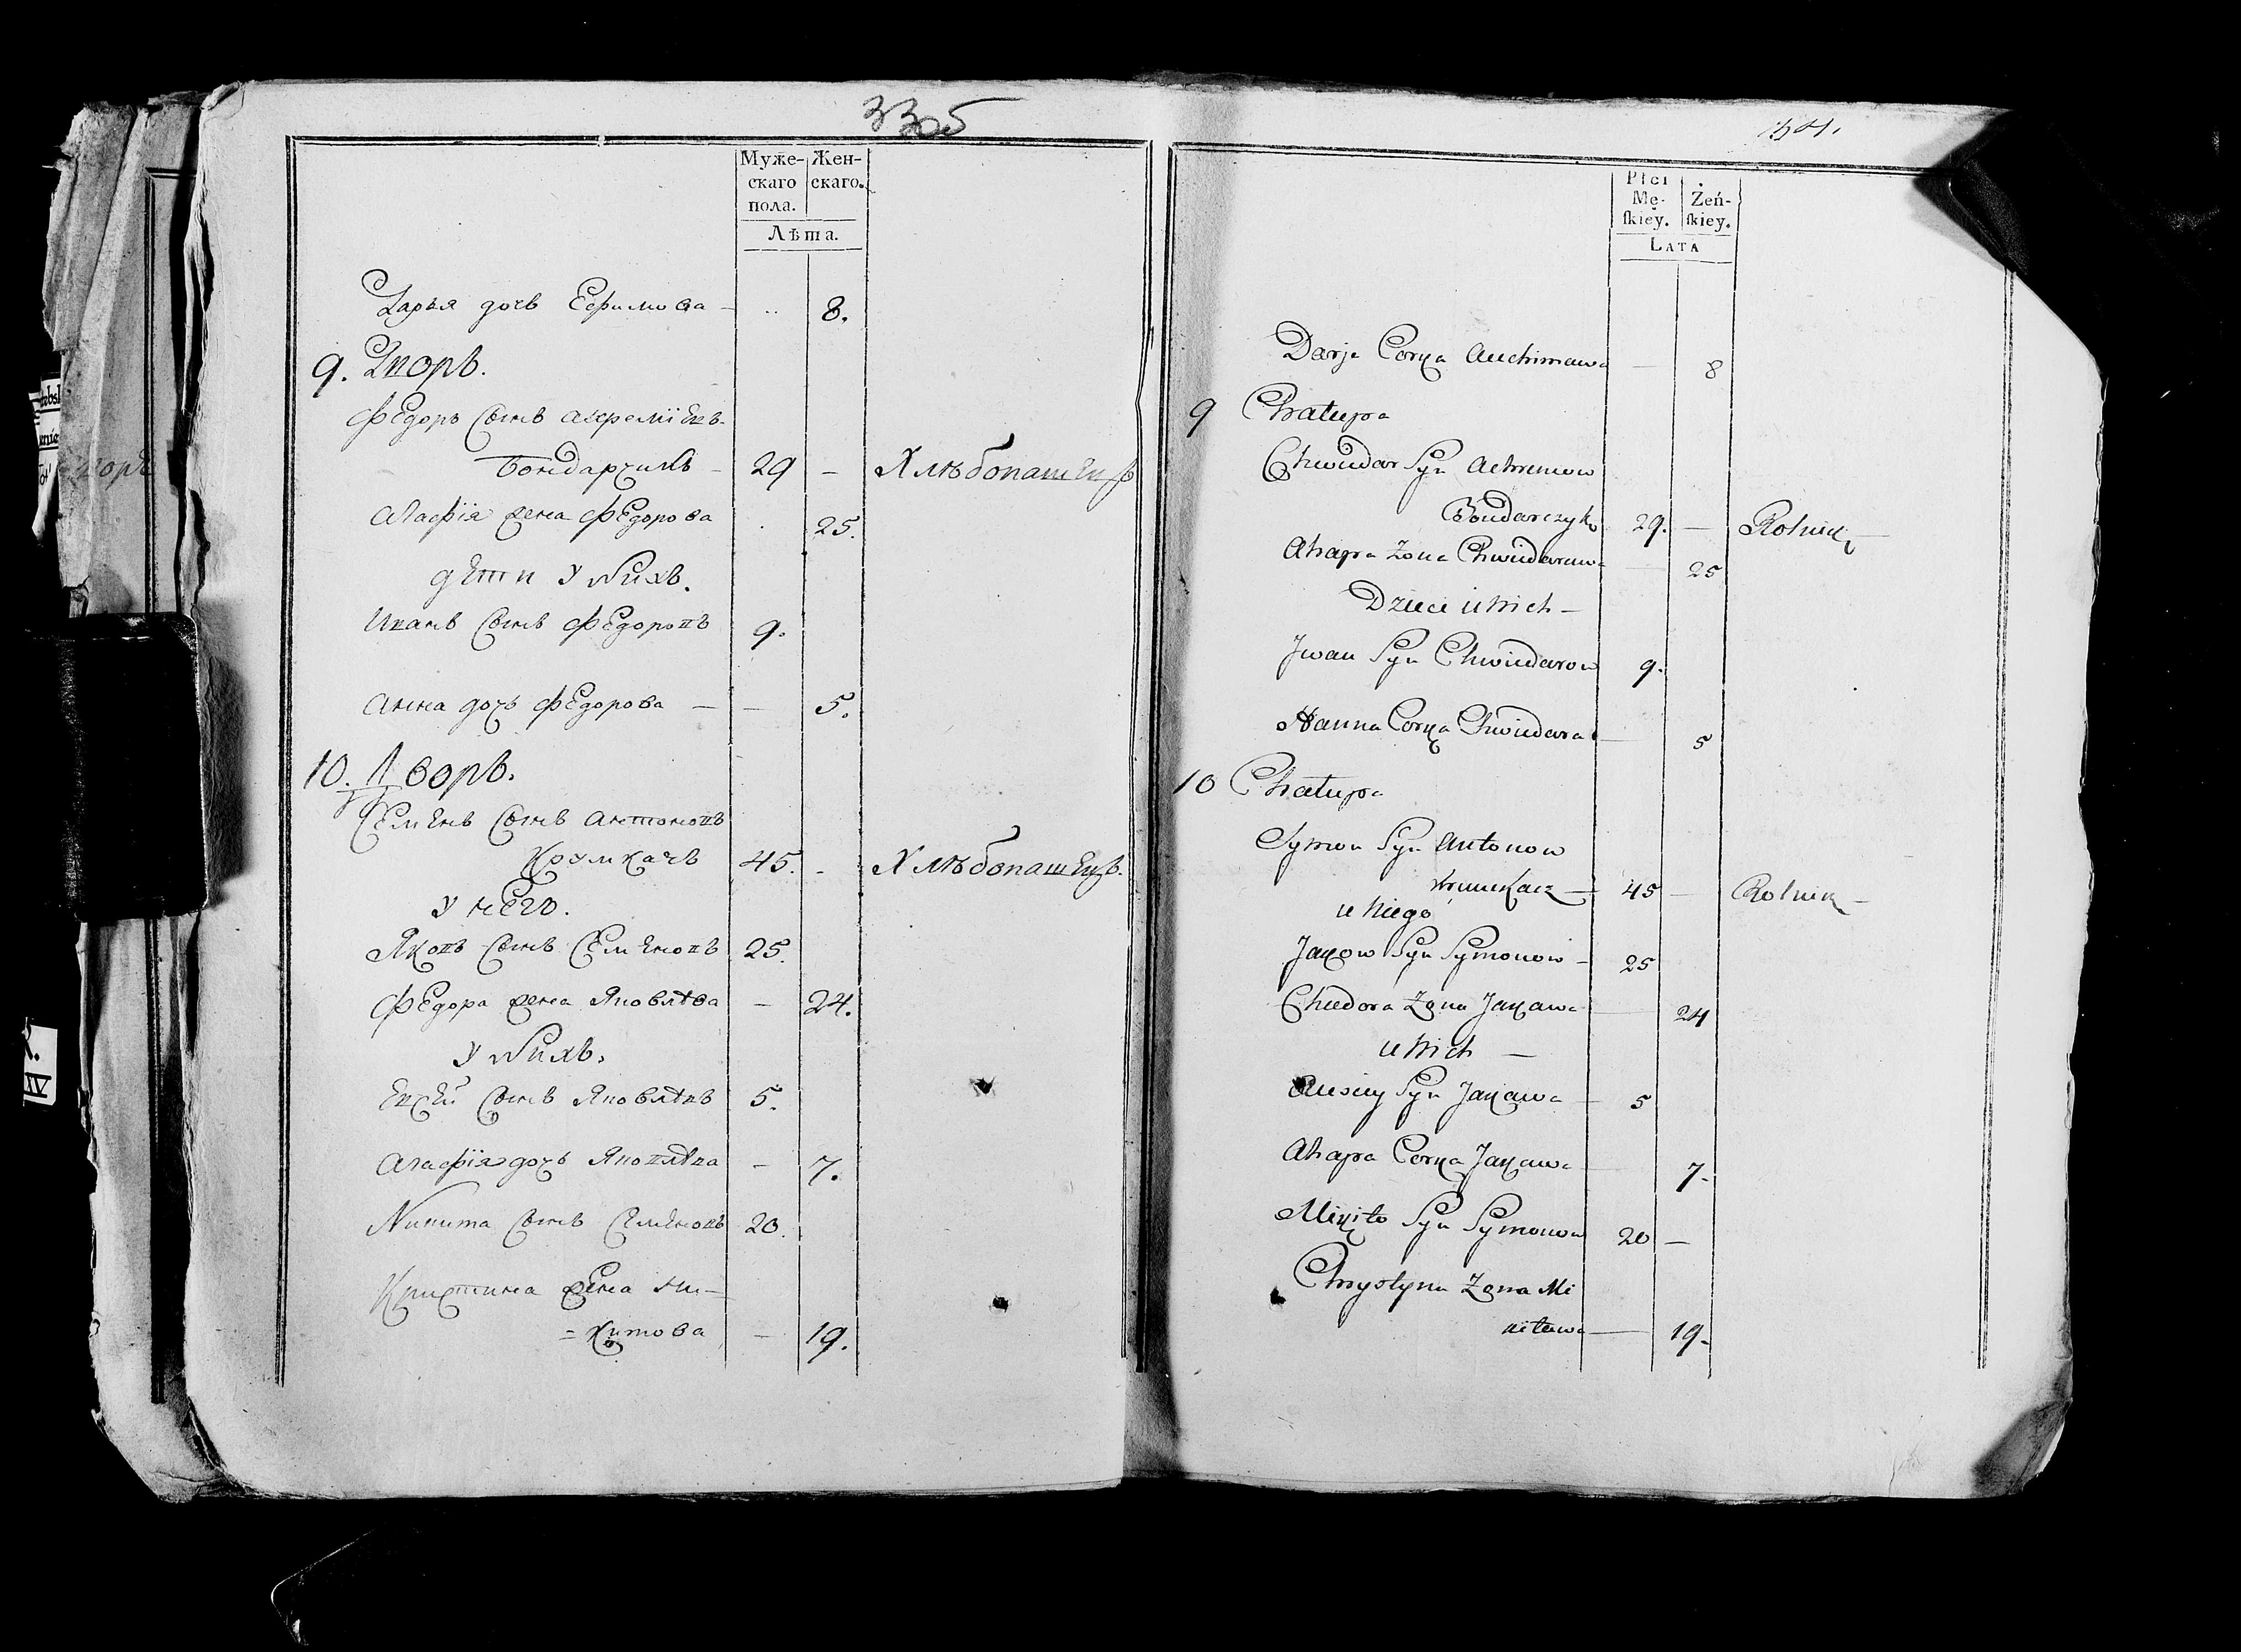 33об
Муже-
скаго
пола.
Жен-
скаго.
Лѣта.
Дарья дочь Ефимова — .. 8.
9. Дворъ.
Федоръ сынъ Ахремїевъ
Бондарчикъ — 29 — Хлѣбопашецъ
Агафїя жена Федорова . 25.
дети у нихъ.
Иванъ сынъ Федоровъ 9.
Анна дочь Федорова — — 5.
10. Дворъ.
Семенъ сынъ Антоновъ
Крумкачъ 45. - Хлѣбопашецъ.
у него.
Яковъ сынъ Семеновъ 25.
Федора жена Яковлѣва — 24.
у нихъ.
сынъ Яковлѣвъ 5.
Агафїя дочь Яковлѣва — 7.
Никита сынъ Семеновъ 20.
Кристина жена Ни-
=китова — 19.
Płci
Mę-
ſkiey.
Żeń-
ſkiey.
LATA
Darja Corka Auchimawa — 8
9 Chałupa
Chwiedar Syn Achremow
Bondarczyk 29. — Rolnik
Ahapa Zona Chwiedarowa — 25
Dzieci u Nich —
Jwan Syn Chwiedarow 9.
Hanna Corka Chwiedara — 5
10 Chałupa
Symon Syn Antonow
Krumkacz — 45 — Rolnik —
u Niego
Jakow Syn Symonow — 25
Chiedora Zona Jakawa — 24
u Nich —
Syn Jakawa — 5
Ahapa Corka Jakawa — 7.
Mikita Syn Symonow 20 —
Chrystyna Zona Mi
kitawa — 19.